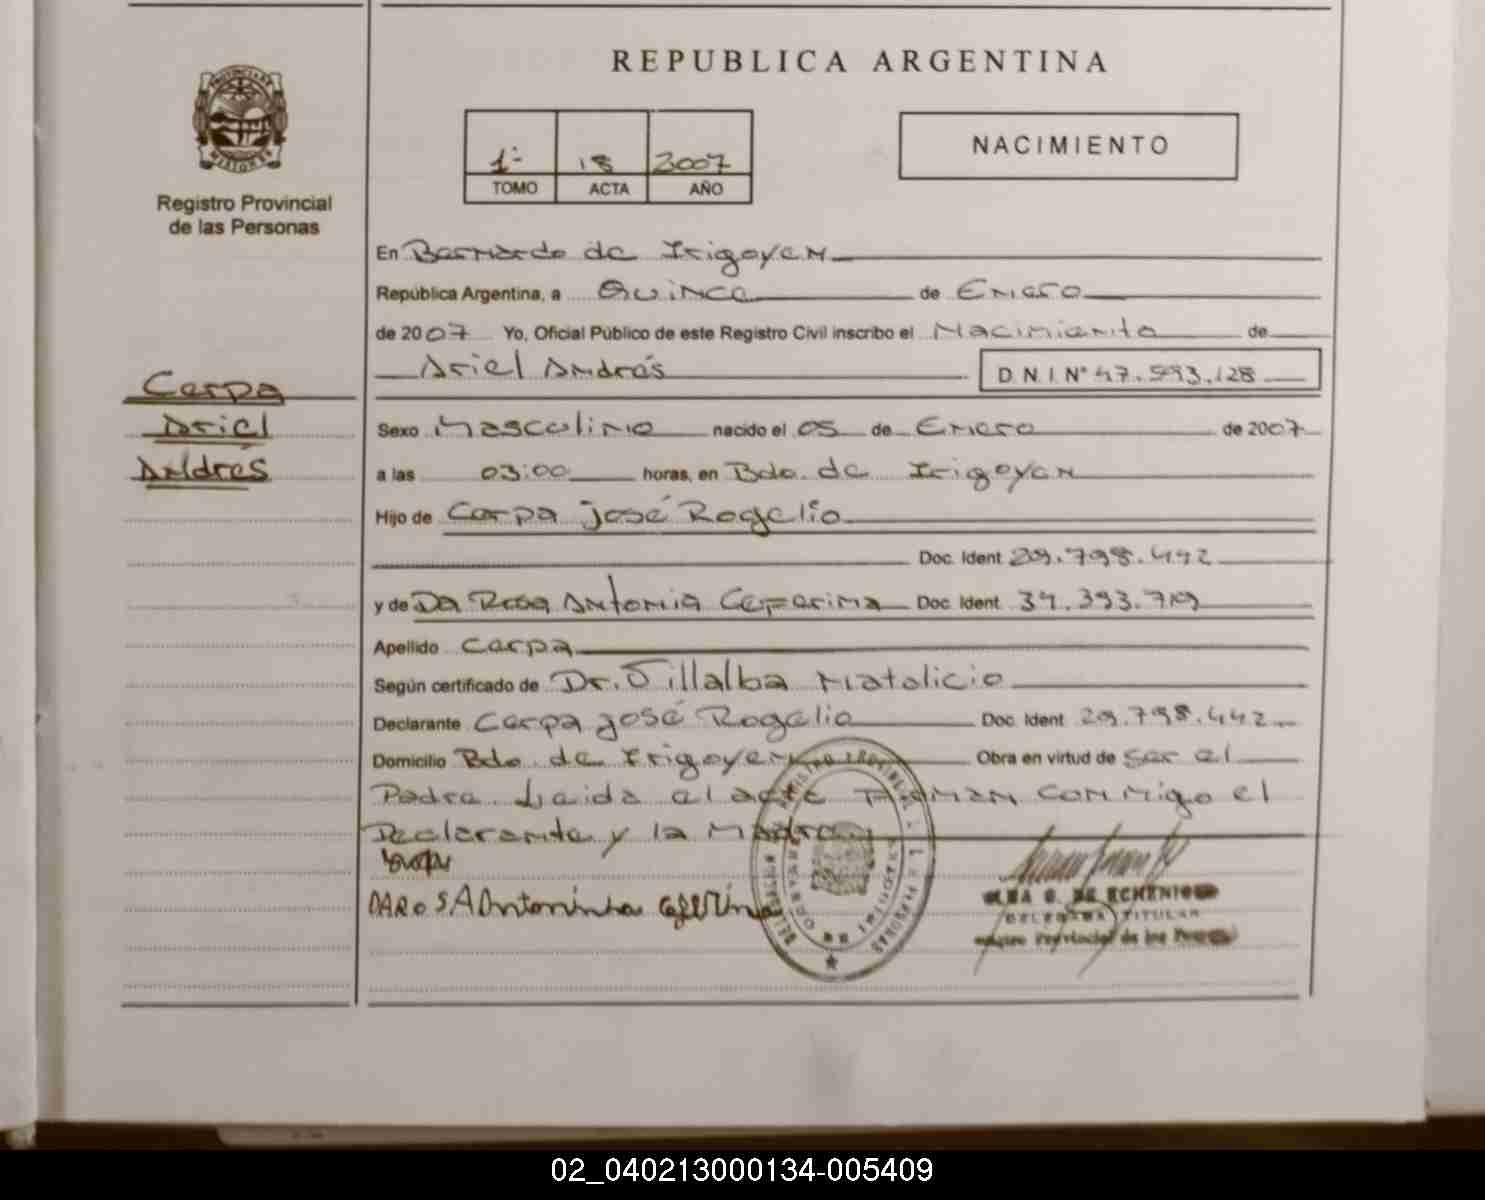 REPUBLICA ARGENTINA
PROVINCIA DE MISIONES
Registro Provincial
de las Personas
1º 18 2007
TOMO ACTA AÑO
NACIMIENTO
En Bernardo de Irigoyen
República Argentina, a Quince de Enero
de 2007 Yo, Oficial Público de este Registro Civil inscribo el Nacimiento de
Ariel Andrés D.N.I. Nº 47.593.128
Cerpa
Ariel
Andrés
Sexo Masculino nacido el 05 de Enero de 2007
a las 03:00 horas, en Bdo. de Irigoyen
Hijo de Cerpa José Rogelio
Doc. Ident 29.798.442
y de Da Rosa Antonia Ceferina Doc. Ident. 34.393.719
Apellido Cerpa
Según certificado de Dr. Villalba Natalicio
Declarante Cerpa José Rogelio Doc. Ident 29.798.442
Domicilio Bdo. de Irigoyen Obra en virtud de ser el
Padre. Leida el acta Firman conmigo el
Declarante y la Madre
DAROSA Antoninha
G. DE ECHENIQUE
DELEGADA TITULAR
Registro Provincial de las Personas
02_040213000134-005409